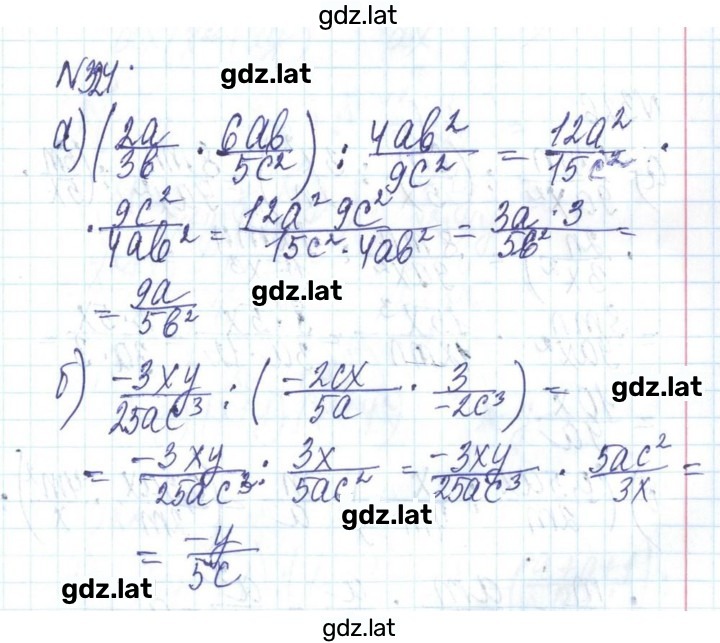 gdz.lat
№324.
gdz.lat
а) (2a/3b · 6ab/5c²) : 4ab²/9c² = 12a²/15c² ·
· 9c²/4ab² = 12a² 9c²/15c² · 4ab² = 3a · 3/5b² =
= 9a/5b²
gdz.lat
б) -3xy/25ac³ : (-2cx/5a · 3/-2c³) =
gdz.lat
= -3xy/25ac³ : 3x/5ac² = -3xy/25ac³ · 5ac²/3x =
gdz.lat
= -y/5c
gdz.lat
gdz.lat